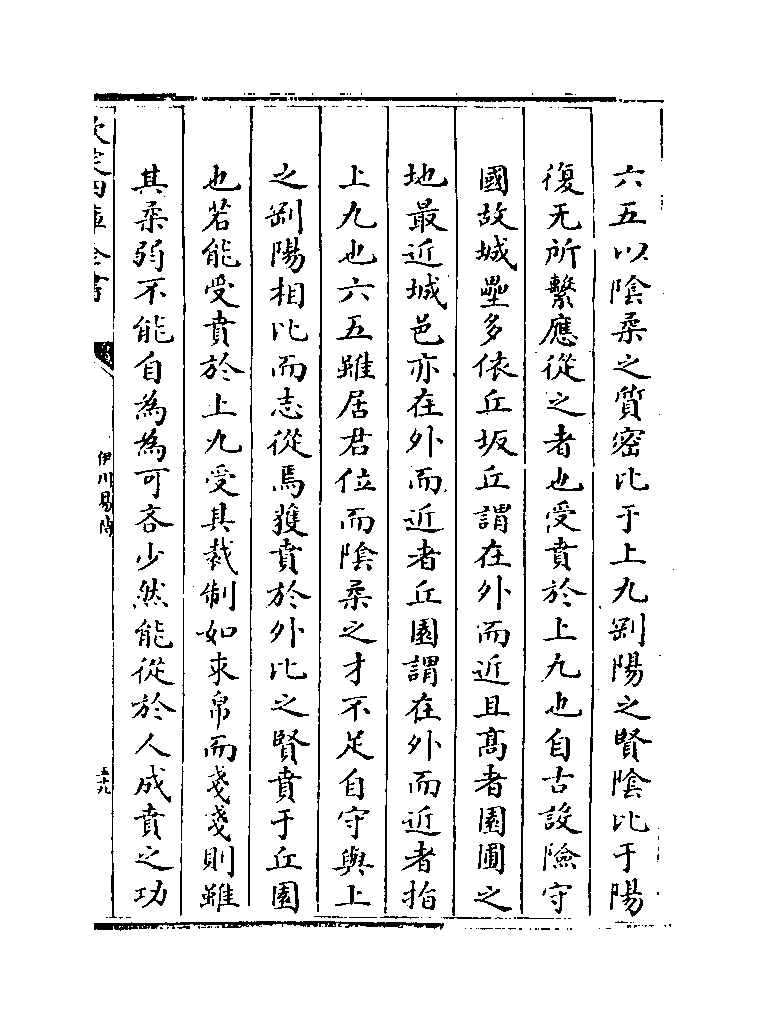 六五以陰柔之質密比于上九剛陽之賢陰比于陽
復无所繫應從之者也受賁於上九也自古設險守
國故城壘多依丘坂丘謂在外而近且髙者園圃之
地最近城邑亦在外而近者丘園謂在外而近者指
上九也六五雖居君位而陰柔之才不足自守與上
之剛陽相比而志從焉獲賁於外比之賢賁于丘園
也若能受賁於上九受其裁制如束帛而戔戔則雖
其柔弱不能自為為可吝少然能從於人成賁之功
欽定四庫全書
伊川易傳
五十九